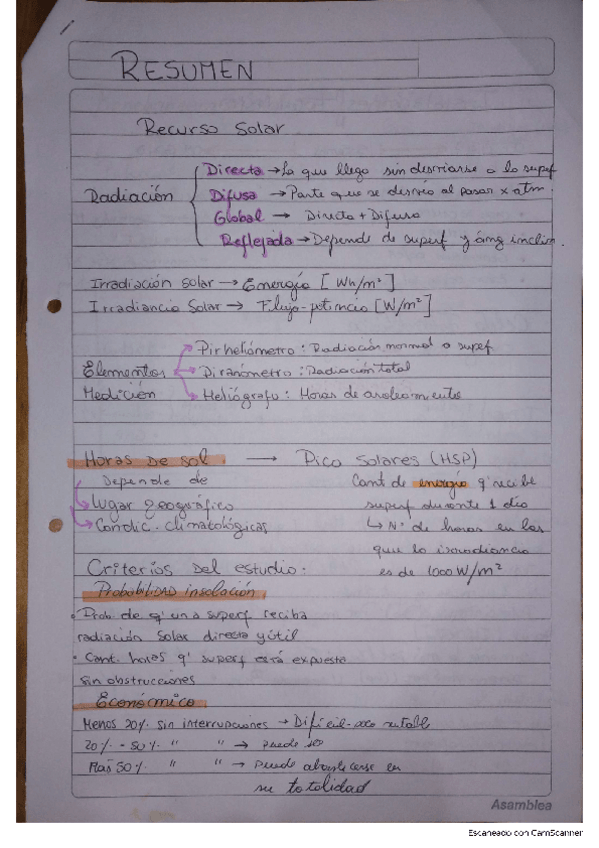 RESUMEN
Recurso Solar
Radiación
Directa → La que llega sin desviarse a la superf
Difusa → Parte que se desvió al pasar x atm.
Global → Directa + Difusa
Reflejada → Depende de superf y áng inclin.
Irradiación solar → Energía [Wh/m²]
Irradiancia Solar → Flujo-potencia [W/m²]
Elementos Medición
Pirheliómetro: Radiación normal a superf
Piranómetro: Radiación total
Heliógrafo: Horas de asoleamiento
HORAS DE SOL → Pico Solares (HSP)
Depende de
Lugar geográfico
Condic. climatológicas
Cant de energía q' recibe
superf durante 1 día
↳ N° de horas en las
que la irradiancia
es de 1000 W/m²
Criterios del estudio:
Probabilidad insolación
• Prob. de q' una superf reciba
radiación solar directa y útil
• Cant. horas q' superf está expuesta
sin obstrucciones
Económico
Menos 20% sin interrupciones → Difícil
20% - 50% " " → puede ser
Más 50% " " → puede abastecerse en
su totalidad
Asamblea
Escaneado con CamScanner